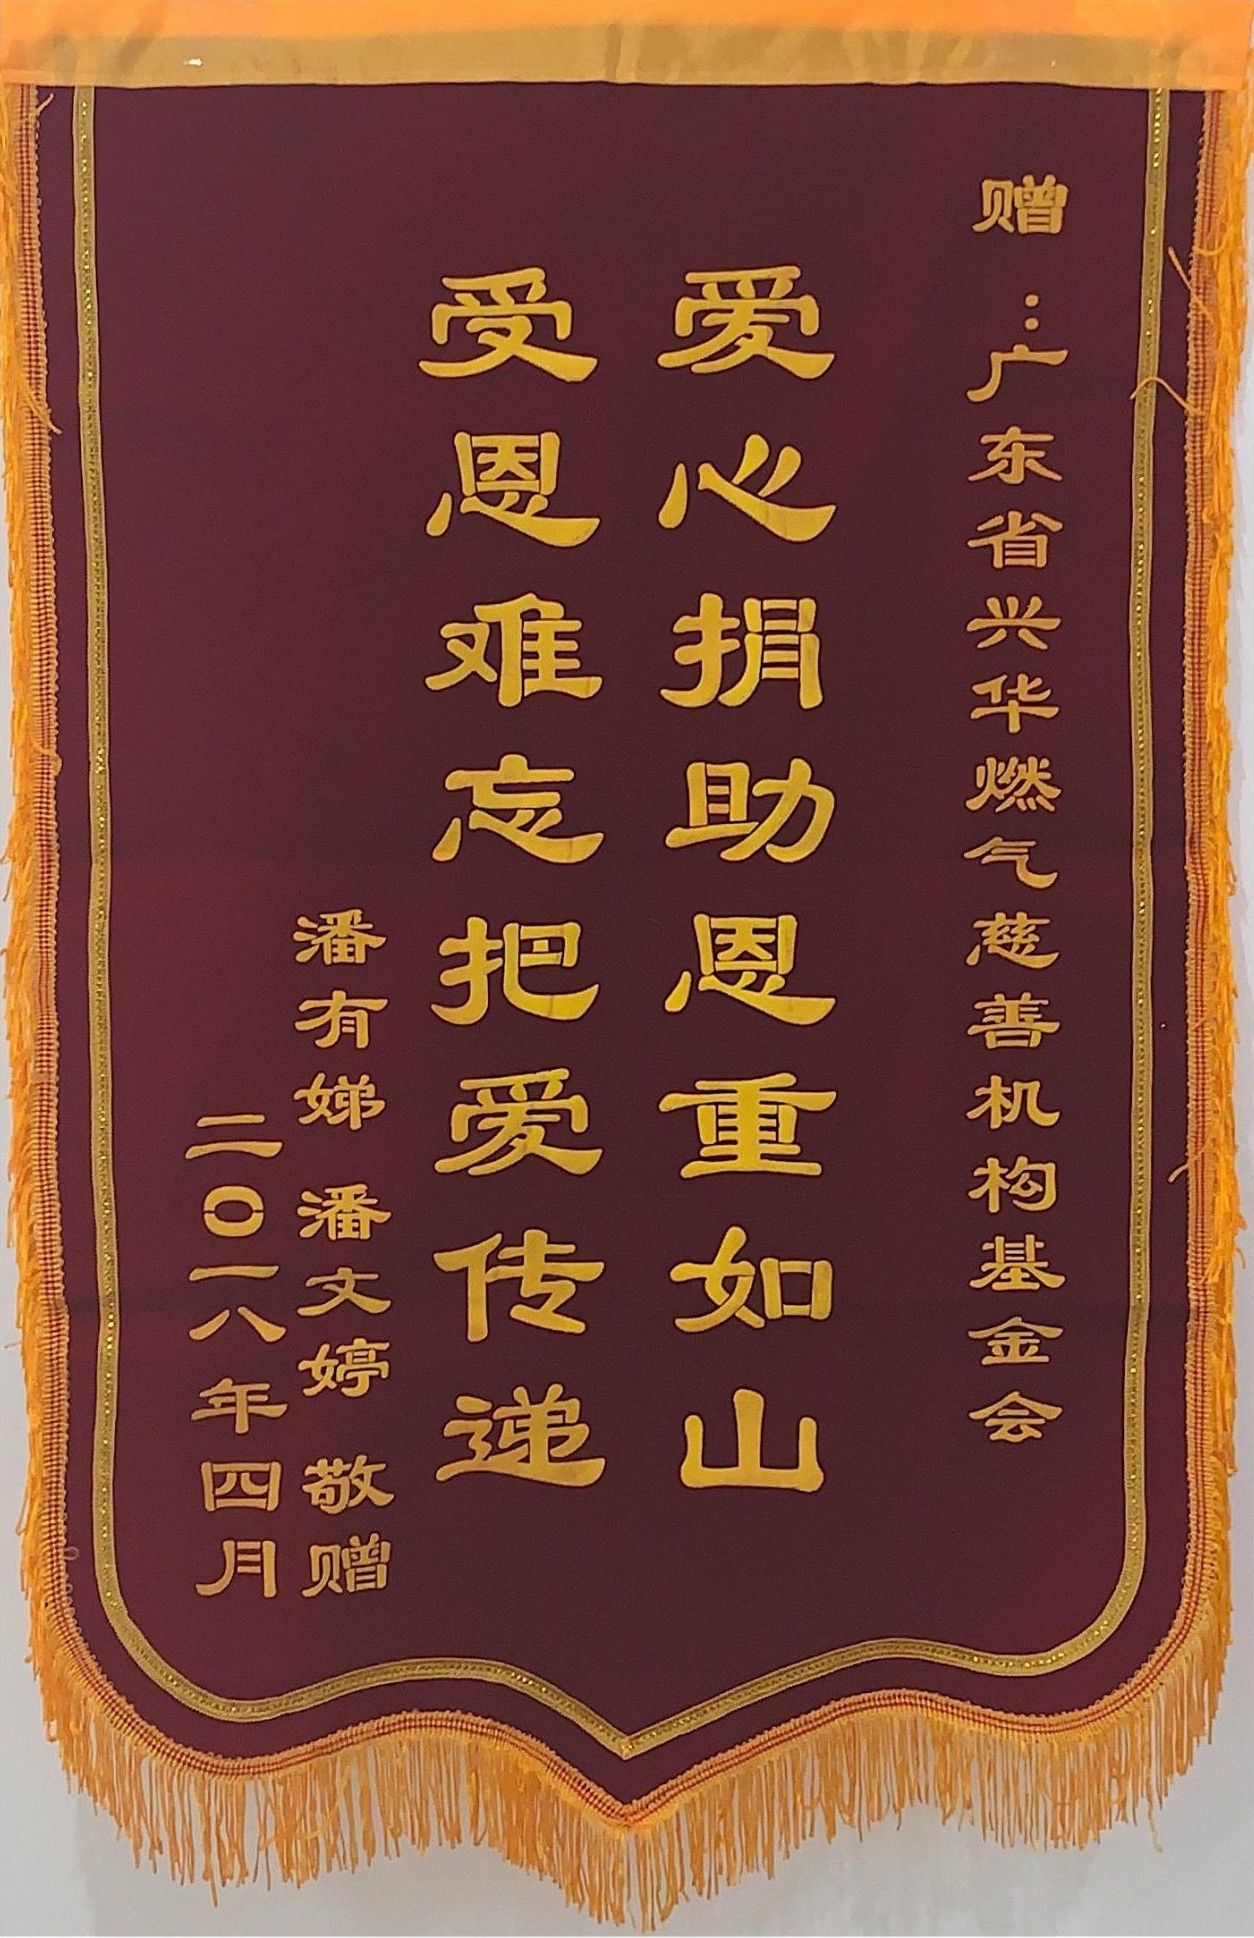 赠：广东省兴华燃气慈善机构基金会
爱心捐助恩重如山
受恩难忘把爱传递
潘有娣 潘文婷 敬赠
二〇一八年四月